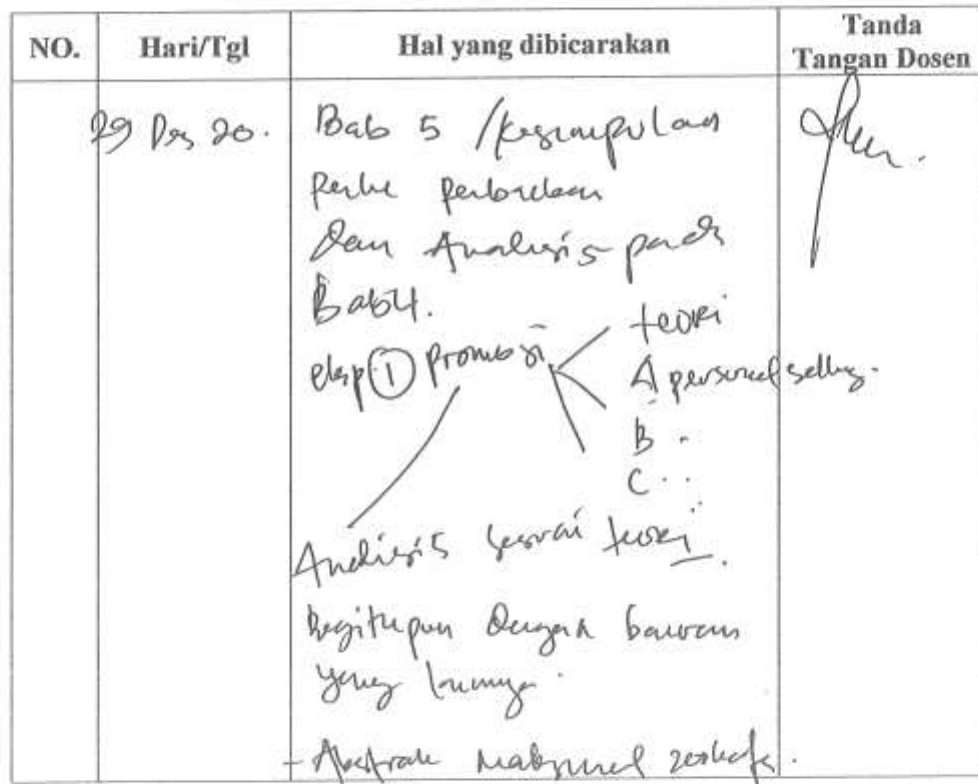 NO.
Hari/Tgl
Hal yang dibicarakan
Tanda
Tangan Dosen
29 Des 20.
Bab 5 /kesimpulan
Perlu perbedaan
dan Analisis pada
Bab 4.
teori
① promosi
A personal selling.
B .
C . .
Analisis sesuai teori.
Begitupun dengan bauran
yang lainnya.
- Abstrak maksimal